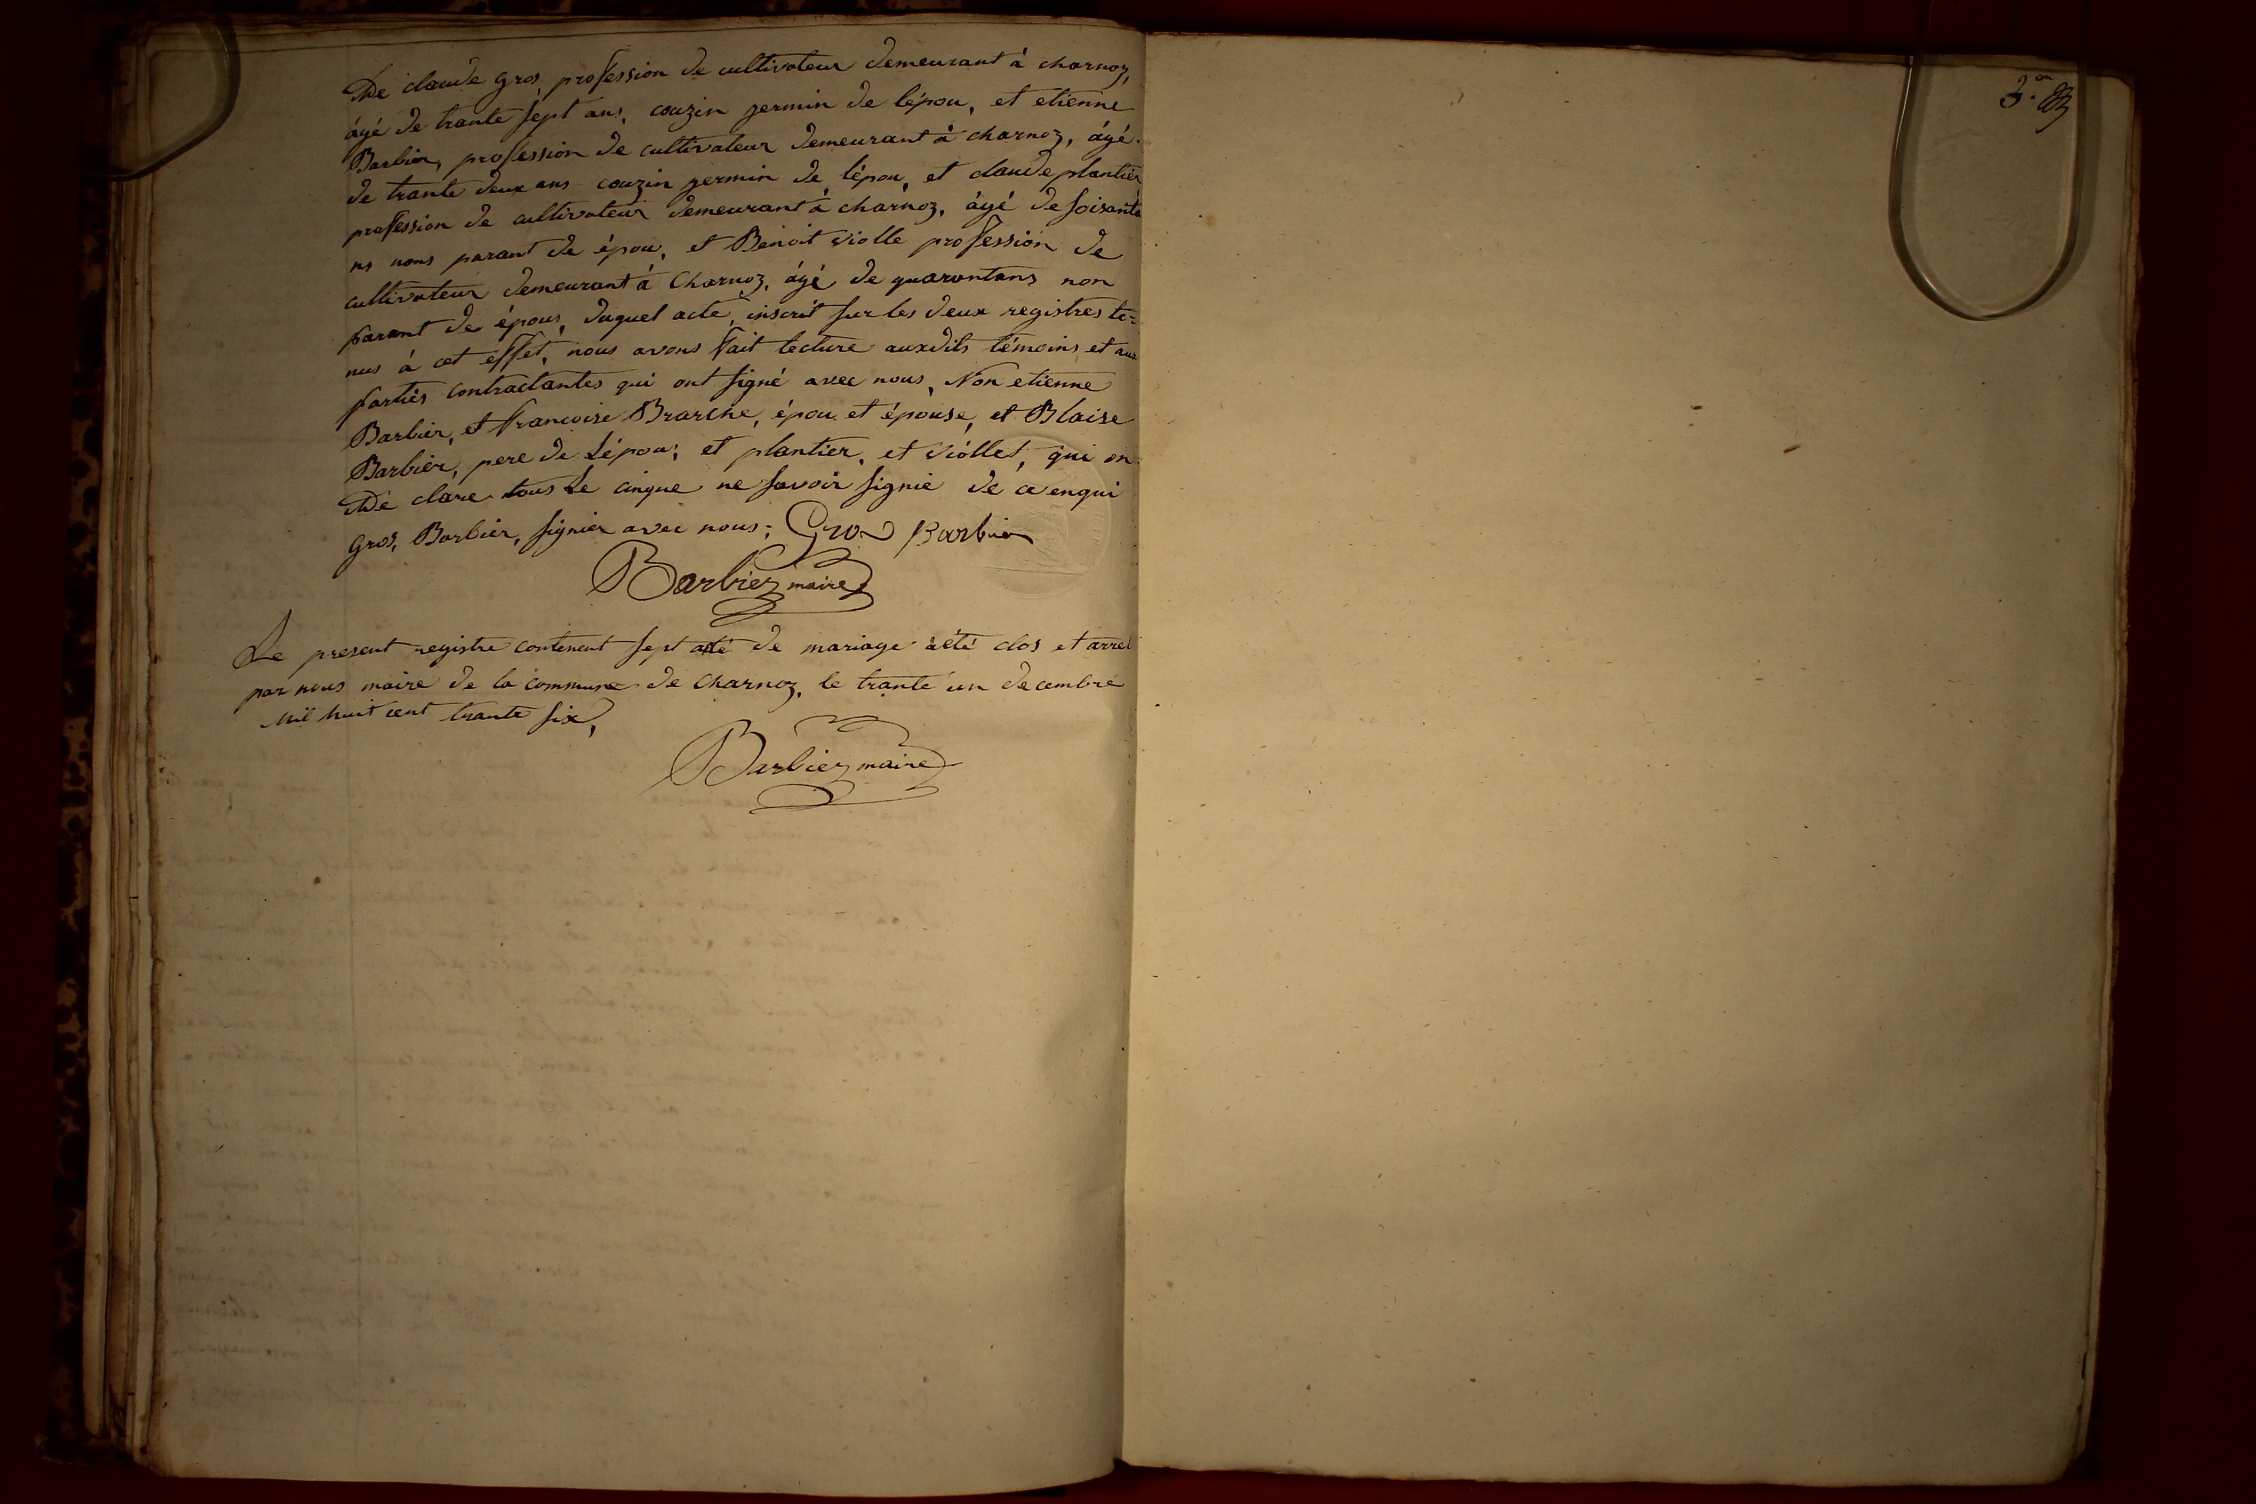 De claude gros, profession de cultivateur demeurant à charnoz,
âgé de trante sept ans, couzin germin de lépou, et etienne
Barbier, profession de cultivateur demeurant à charnoz, âgé
de trante deux ans couzin germin de lépou, et claude plantier
profession de cultivateur demeurant à charnoz, âgé de soisante
ns nons parant de épou, et Benoit violle profession de
cultivateur demeurant à Charnoz, âgé de quarantans non
parant de épous, duquel acte, inscrit sur les deux registres te=
nus à cet effet, nous avons fait lecture auxdits témoins et aux
parties contractantes qui ont signé avec nous, Non etienne
Barbier, et francoise Brarche, épou et épouse, et Blaise
Barbier, pere de Lépou; et plantier, et viollet, qui on
Dé clare tous Le cinque ne savoir signie de ce enqui
gros, Barbier, signier avec nous; Gros Barbier
Barbier maire
Le present registre contenent sept acte de mariage a été clos et arret
par nous maire de la commune de Charnoz, le trante un decembre
Mil huit cent trante six,
Barbier maire